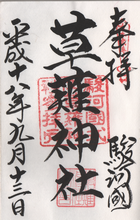 奉拝
駿河國
草薙神社
平成十八年九月十三日